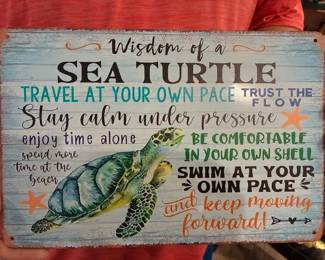 Wisdom of a
SEA TURTLE
TRAVEL AT YOUR OWN PACE
TRUST THE
FLOW
Stay calm under pressure
enjoy time alone
spend more
time at the
beach
BE COMFORTABLE
IN YOUR OWN SHELL
SWIM AT YOUR
OWN PACE
and keep moving
forward!